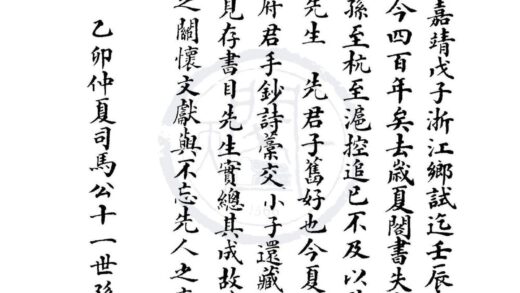 嘉靖戊子浙江鄉試迄壬辰
今四百年矣去歲夏閣書失
孫至杭至滬控追已不及以
先生 先君子舊好也今夏
府君手鈔詩藁交小子還藏
見存書目先生實總其成故
之關懷文獻與不忘先人之
乙卯仲夏司馬公十一世孫